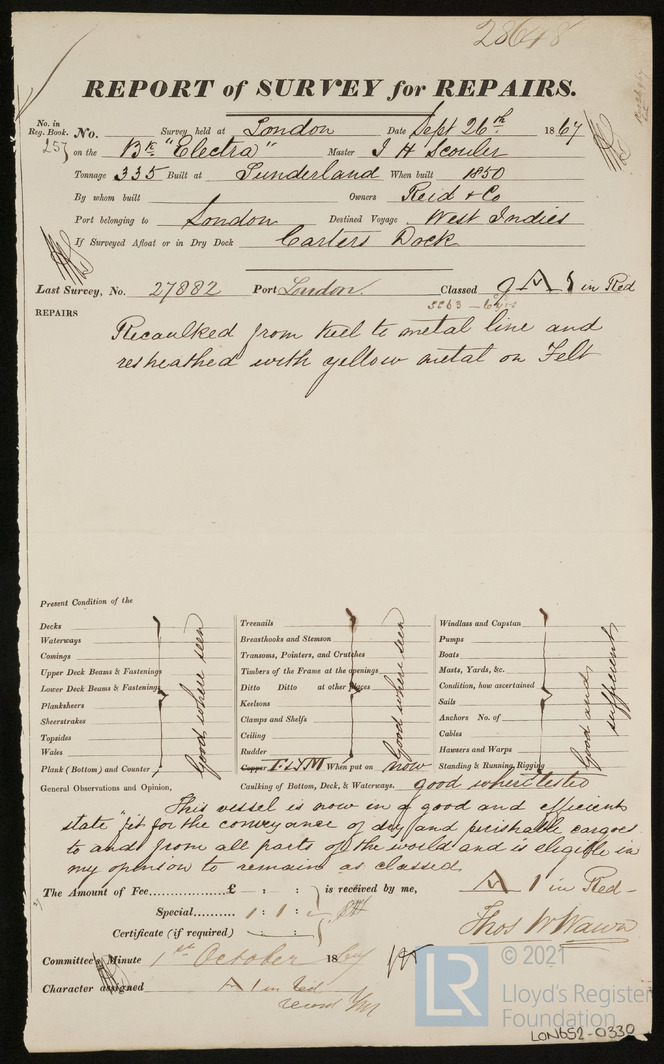 28648
REPORT of SURVEY for REPAIRS.
No. in Reg. Book. No. Survey held at London Date Sept 26th 1867
257 on the Bk "Electra" Master J H Scouler
Tonnage 335 Built at Sunderland When built 1850
By whom built Owners Reid & Co
Port belonging to London Destined Voyage West Indies
If Surveyed Afloat or in Dry Dock Carters Dock
Last Survey, No. 27882 Port London. Classed 9 A 1 in Red
REPAIRS
Recaulked from Keel to metal line and
resheathed with yellow metal on Felt
Present Condition of the
Decks
Waterways
Comings
Upper Deck Beams & Fastenings
Lower Deck Beams & Fastenings
Planksheers
Sheerstrakes
Topsides
Wales
Plank (Bottom) and Counter
Good where seen
Treenails
Breasthooks and Stemson
Transoms, Pointers, and Crutches
Timbers of the Frame at the openings
Ditto Ditto at other places
Keelsons
Clamps and Shelfs
Ceiling
Rudder
Copper F & YM When put on now
Good where seen
Windlass and Capstan
Pumps
Boats
Masts, Yards, &c.
Condition, how ascertained
Sails
Anchors No. of
Cables
Hawsers and Warps
Standing & Running Rigging
Good and sufficient
General Observations and Opinion, Caulking of Bottom, Deck, & Waterways. good where tested
This vessel is now in a good and efficient
state fit for the conveyance of dry and perishable cargoes
to and from all parts of the world and is eligible in
my opinion to remain as classed
A 1 in Red
The Amount of Fee...............£ - : - : is received by me,
Special.......... 1 : 1 : -
Certificate (if required) : :
Thos W Wawn
Committee's Minute 1st October 1867
Character assigned A 1 in red
© 2021
LR
Lloyd's Register
Foundation
LON652-0330